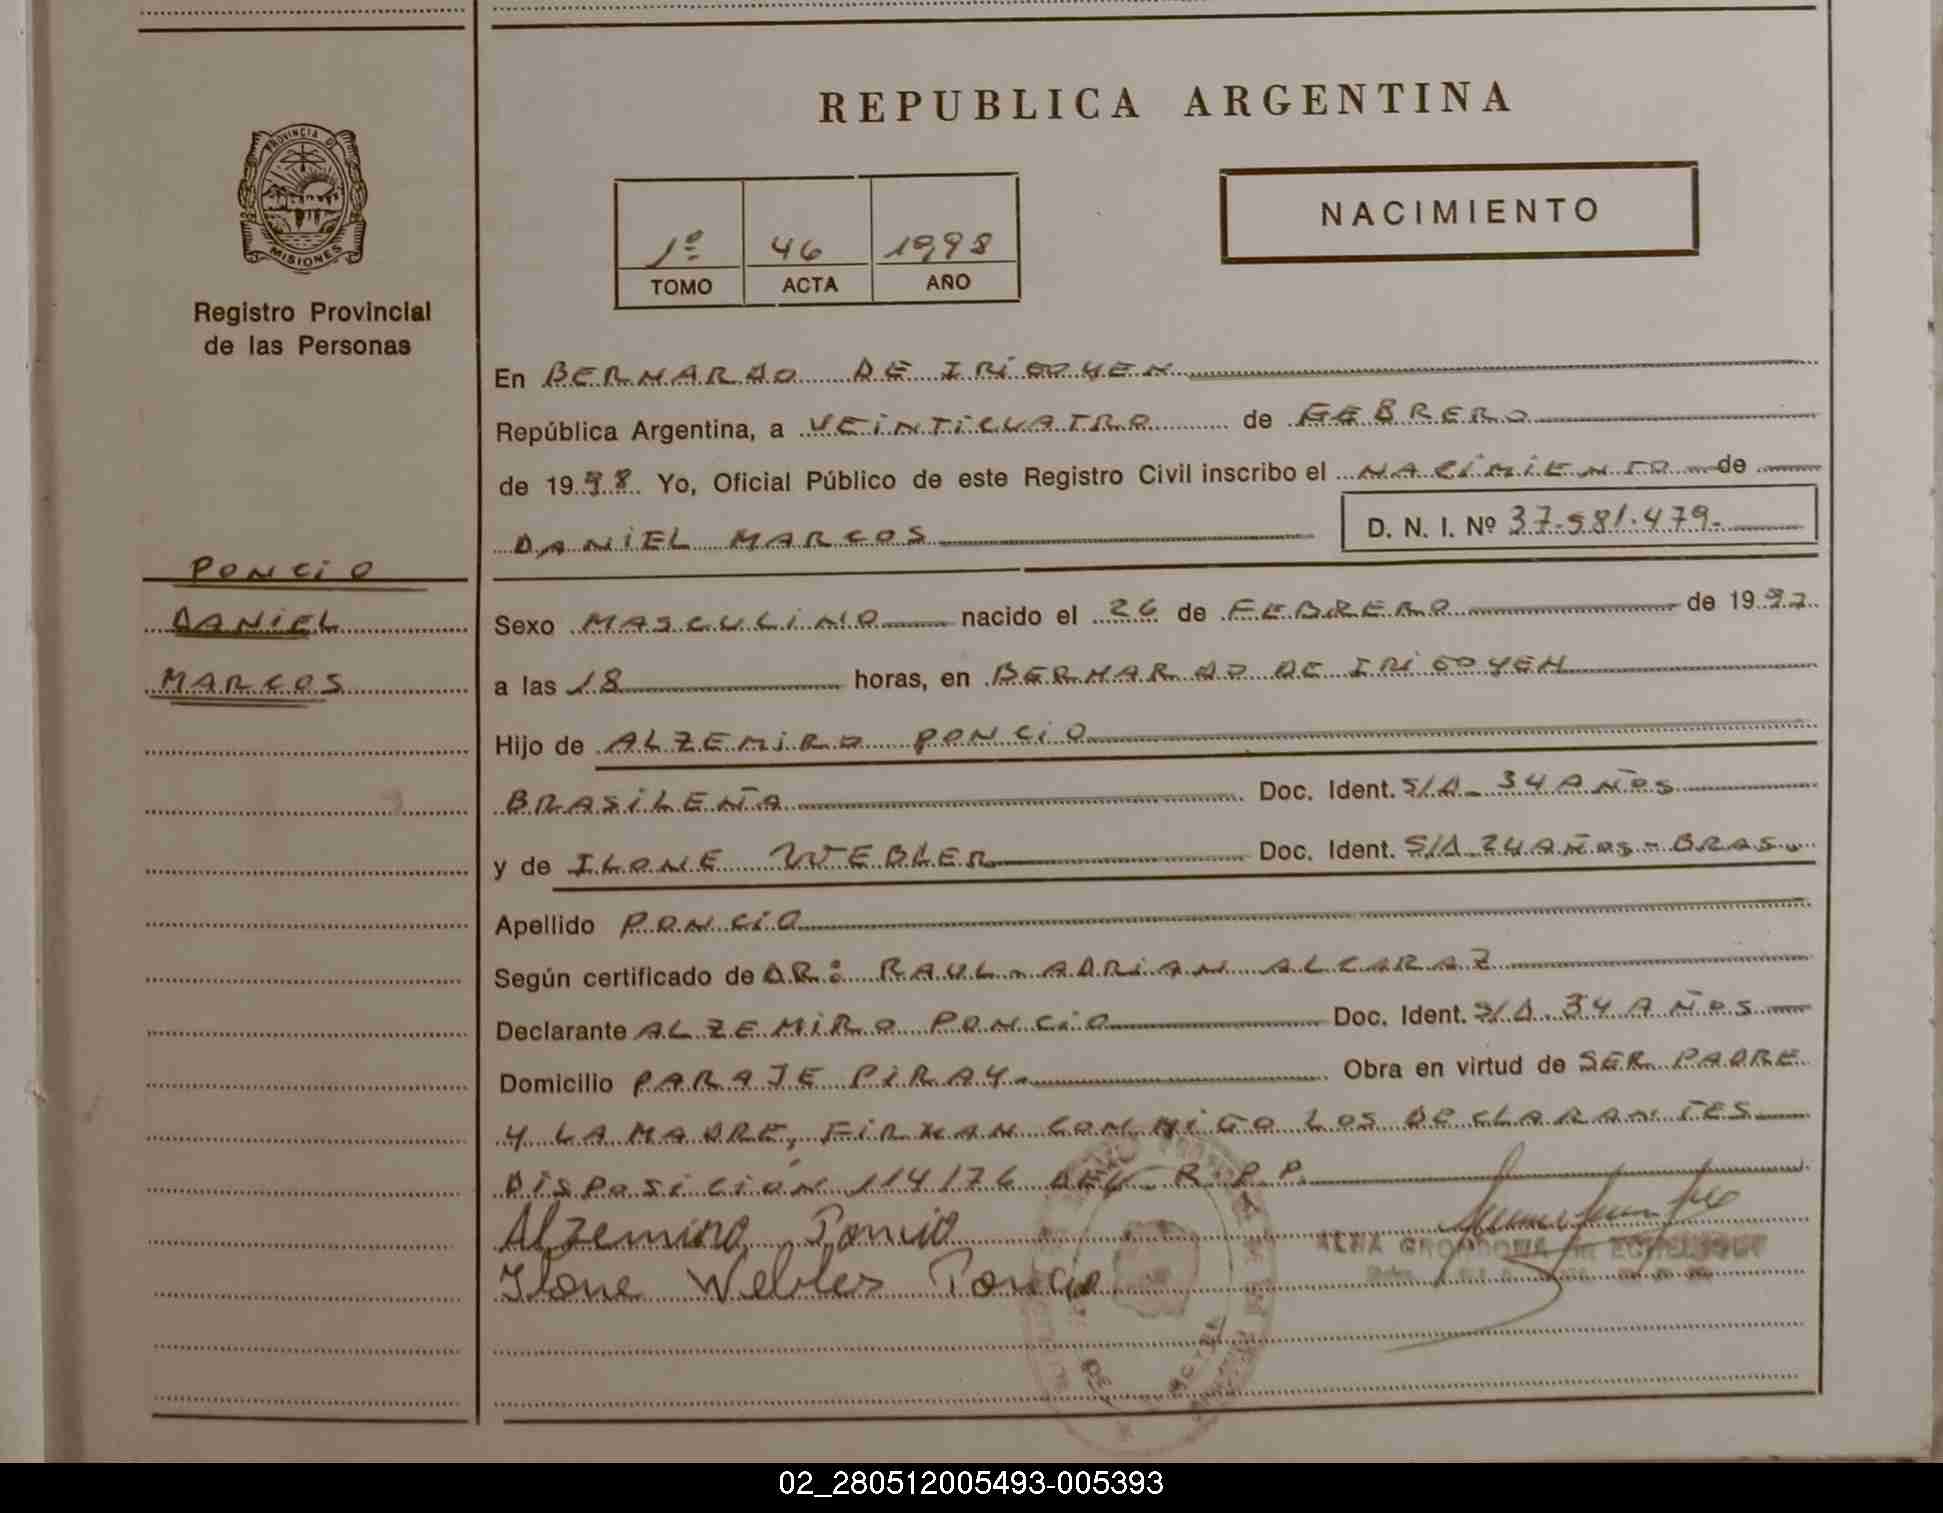 REPUBLICA ARGENTINA
PROVINCIA DE
MISIONES
Registro Provincial
de las Personas
NACIMIENTO
1º 46 1998
TOMO ACTA AÑO
En BERNARDO DE IRIGOYEN
República Argentina, a VEINTICUATRO de FEBRERO
de 1998 Yo, Oficial Público de este Registro Civil inscribo el NACIMIENTO de
DANIEL MARCOS D. N. I. Nº 37.581.479.
PONCIO
DANIEL
MARCOS
Sexo MASCULINO nacido el 26 de FEBRERO de 1997
a las 18 horas, en BERNARDO DE IRIGOYEN
Hijo de ALZEMIRO PONCIO
BRASILEÑA Doc. Ident. S/D. 34 AÑOS
y de ILONE WEBLER Doc. Ident. S/D. 24 AÑOS - BRAS.
Apellido PONCIO
Según certificado de DR: RAUL ADRIAN ALCARAZ
Declarante ALZEMIRO PONCIO Doc. Ident. S/D. 34 AÑOS
Domicilio PARAJE PIRAY. Obra en virtud de SER PADRE
Y LA MADRE, FIRMAN CONMIGO LOS DECLARANTES
DISPOSICIÓN 114/76 DEL R.P.P.
Alzemiro Poncio
ALBA GRONDONA
Ilone Webler Poncio
02_280512005493-005393